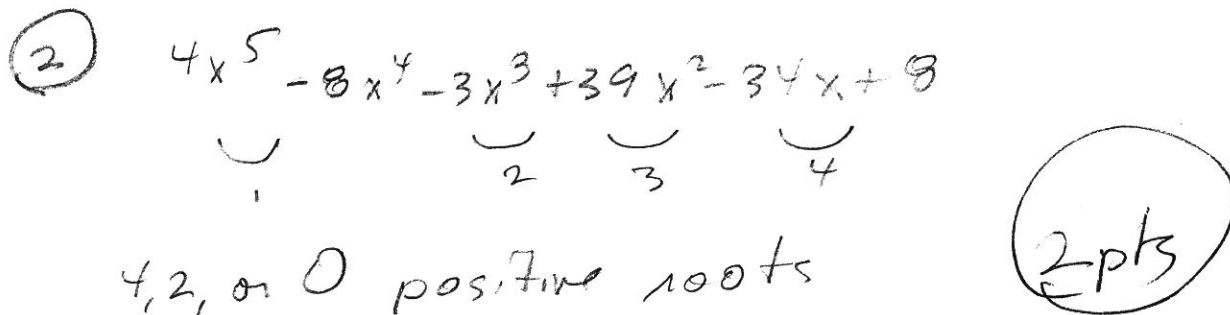 ② 4x⁵ - 8x⁴ - 3x³ + 39x² - 34x + 8
1 2 3 4
4, 2, or 0 positive roots
2pts